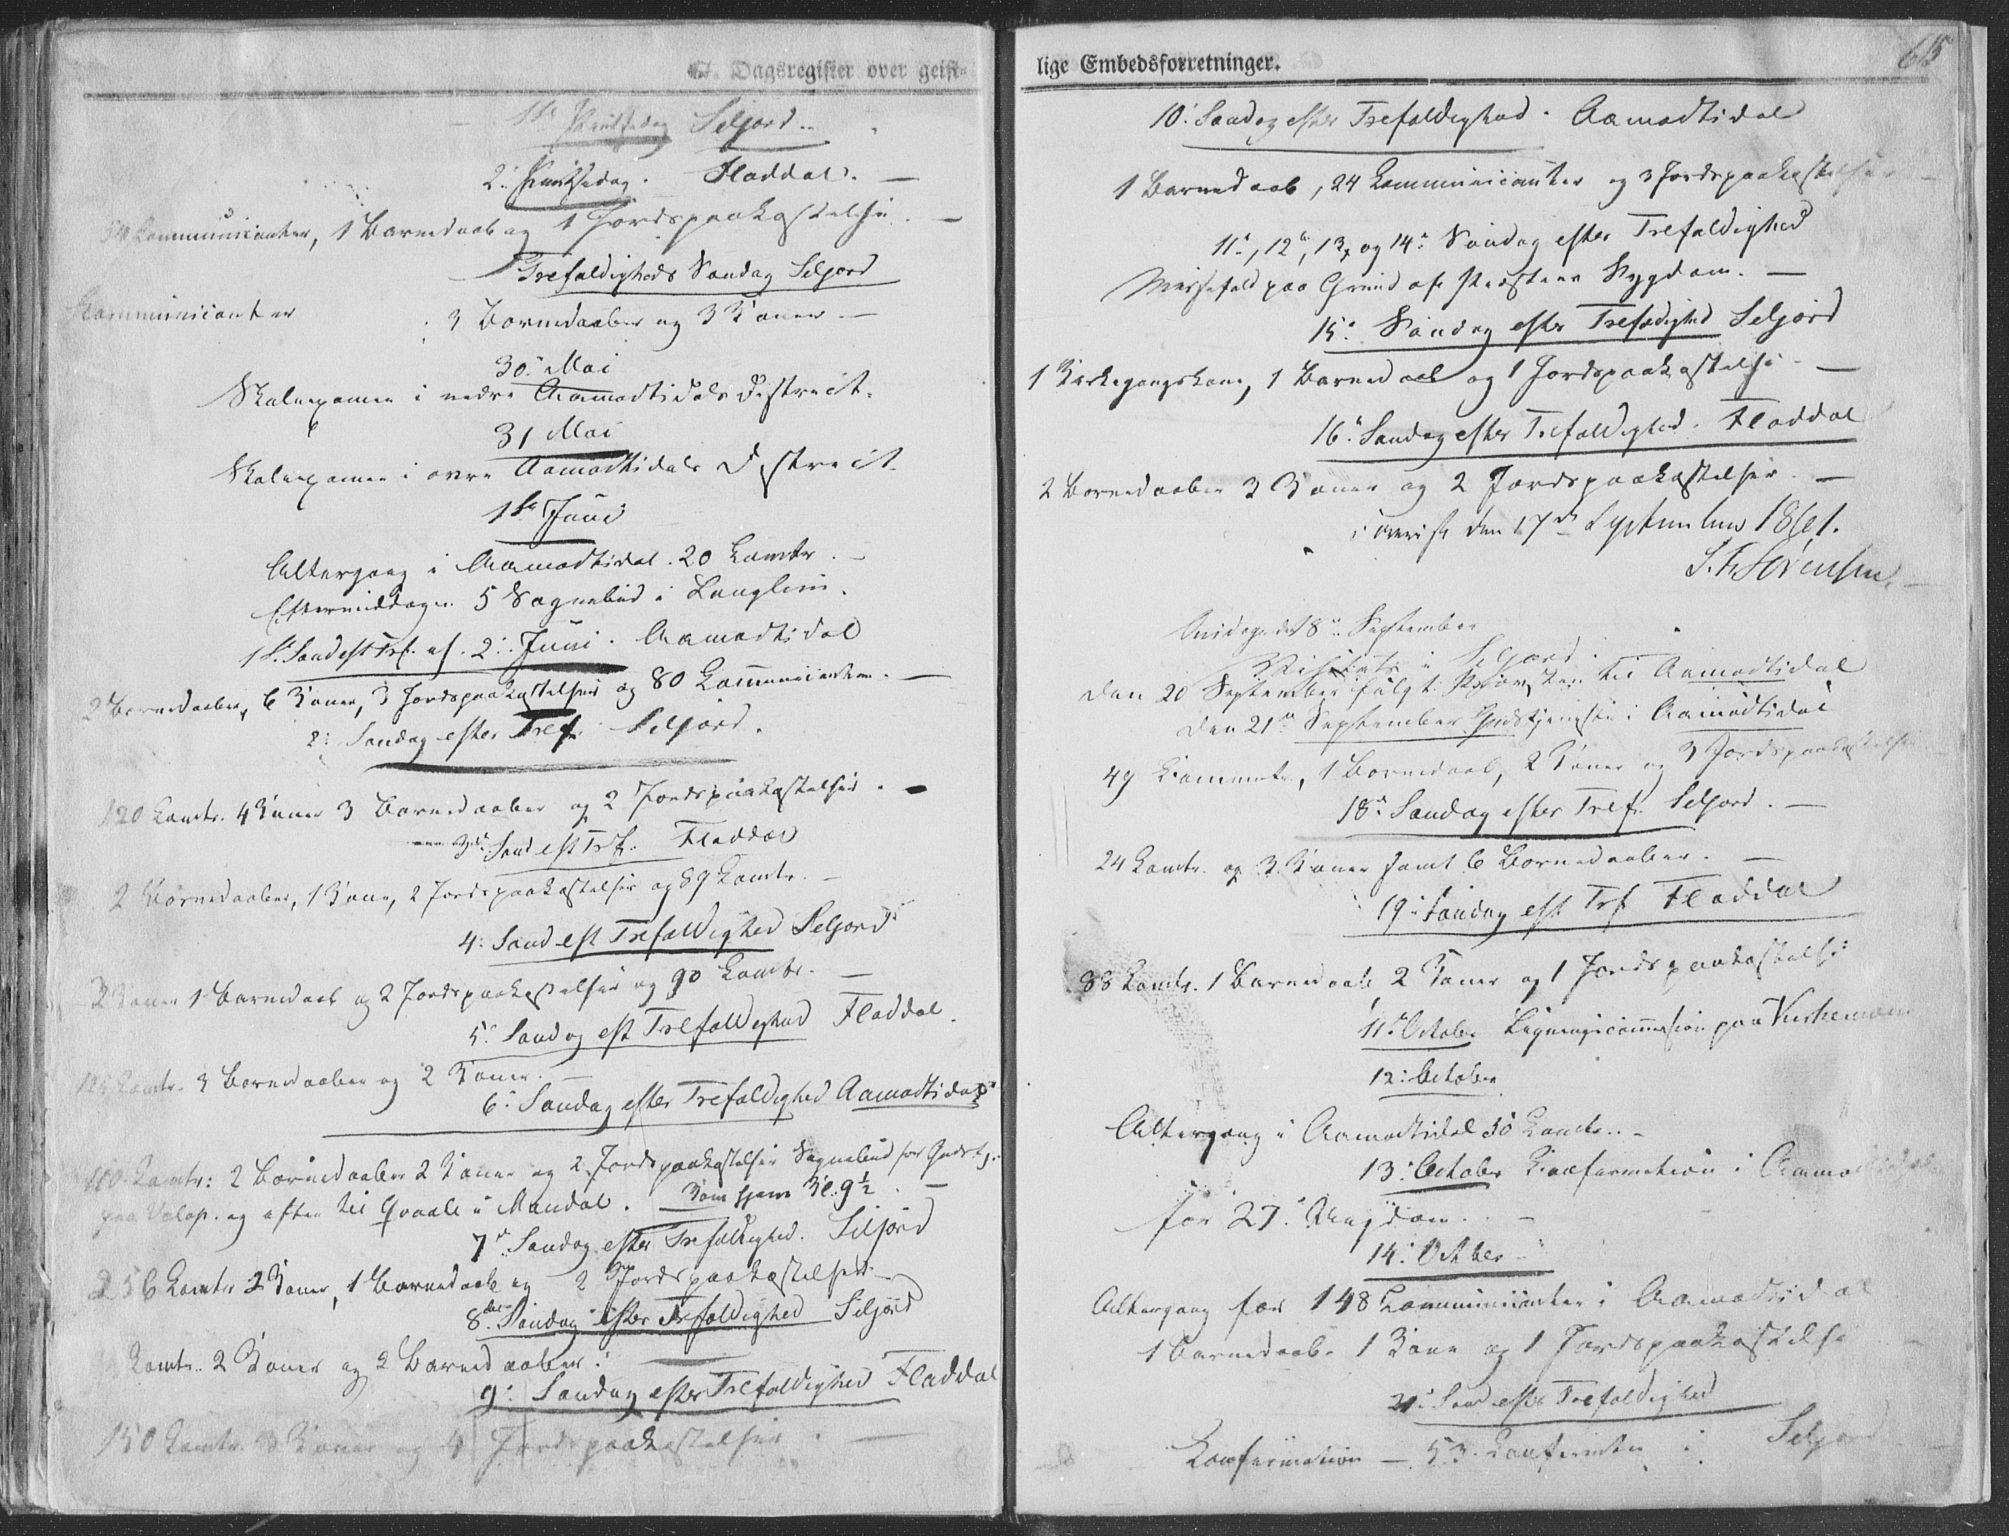 Dagsregister over geist-
1ste Pintsedag Seljord
2. Pintsedag. Fladdal.
Communicanter, 1 Barnedaab og 1 Jordspaakastelse.
Trefoldigheds Søndag Seljord
Kommunicanter 3 Barnedaaber og 3 Koner
30. Mai
Skoleexamen i nedre Aamodtsdals District.
31 Mai
Skoleexamen i øvre Aamodtsdals District
1ste Juni
Altergang i Aamodtsdal. 20 Komtr.
Eftermiddagen 5 Sognebud i Langlim.
1ste Sønd eft Tref. 2. Juni. Aamodtsdal
2 Barnedaaber, 6 Koner, 3 Jordspaakastelser og 80 Kommunicanter.
2. Søndag efter Tref. Seljord.
120 Komtr. 4 Koner 3 Barnedaaber og 2 Jordspaakastelser.
3die Sønd eft Tref. Fladdal
2 Barnedaaber, 1 Kone, 2 Jordspaakastelser og 89 Komtr.
4. Sønd eft Trefoldighed Seljord
2 Koner 1 Barnedaab og 2 Jordspaakastelser og 90 Komtr.
5. Søndag eft Trefoldighed Fladdal.
Komtr. 3 Barnedaaber og 2 Koner.
6. Søndag efter Trefoldighed Aamodtsdal
110 Komtr. 2 Barnedaaber 2 Koner og 2 Jordspaakastelser Sognebud før Gudstj.
paa og efter til Qvaale i Mandal. Kom hjem Kl. 9½.
7de Søndag efter Trefoldighed. Seljord
56 Komtr 2 Koner, 1 Barnedaab og 2 Jordspaakastelser
8de Søndag efter Trefoldighed Seljord
Komtr. 2 Koner og 2 Barnedaaber.
9. Søndag efter Trefoldighed Fladdal
150 Komtr. 3 Koner og 4 Jordspaakastelser.
lige Embedsforretninger.
65
10. Søndag efter Trefoldighed. Aamodtsdal
1 Barnedaab, 24 Communicanter og 3 Jordspaakastelser
11te, 12te, 13de og 14de Søndag efter Trefoldighed
Messefald paa Grund af Præstens Sygdom.
15de Søndag efter Trefoldighed Seljord
1 Kirkegangskone, 1 Barnedaab og 1 Jordspaakastelse
16de Søndag efter Trefoldighed. Fladdal
2 Barnedaaber 2 Koner og 2 Jordspaakastelser.
den 17de September 1861.
S. F. Sørensen.
Onsdagen det 18de September
Visitats i Seljord.
den 20 September fulgt Provsten til Aamodtsdal
den 21de September Gudstjeneste i Aamodtsdal
49 Kommtr, 1 Barnedaab, 2 Koner og 3 Jordspaakastelser
18de Søndag efter Tref. Seljord.
24 Komtr. og 3 Koner samt 6 Barnedaaber.
19. Søndag eft Tref Fladdal
88 Komtr. 1 Barnedaab 2 Koner og 1 Jordspaakastelse
11te October Ligningscommission paa
12. October
Altergang i Aamodtsdal 30 Komtr.
13. October Konfirmation i Aamodtsdal
for 27. Ungdom.
14. Octber
Altergang for 148 Kommunicanter i Aamodtsdal
1 Barnedaab. 1 Kone og 1 Jordspaakastelse
21. Sønd efter Trefoldighed
Konfirmation — 53. Konfirmter i Seljord